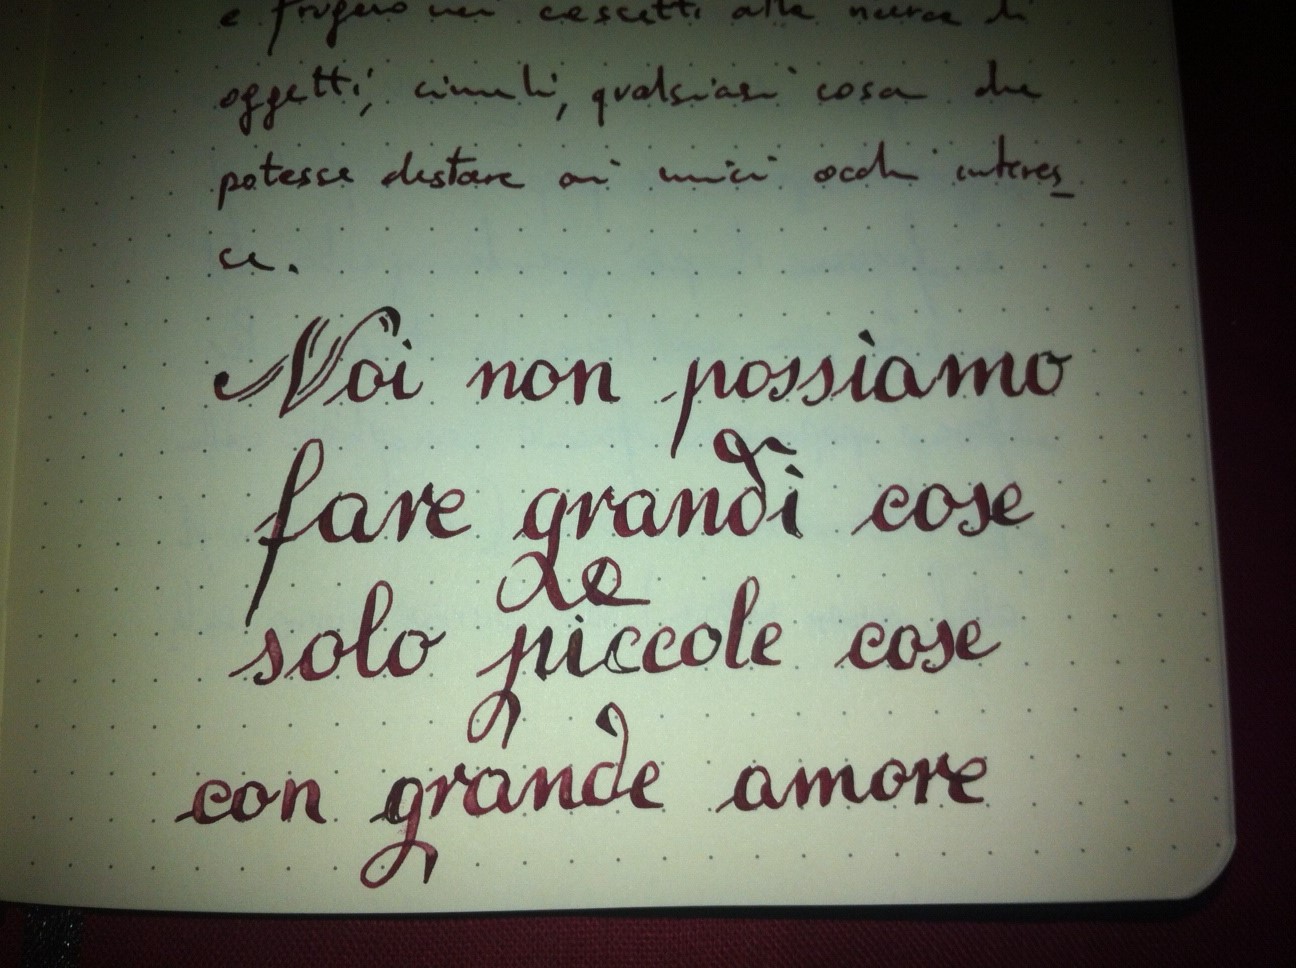 e frugavo nei cassetti alla ricerca di
oggetti, cimeli, qualsiasi cosa che
potesse destare ai miei occhi interes
se.
Noi non possiamo
fare grandi cose
solo piccole cose
con grande amore